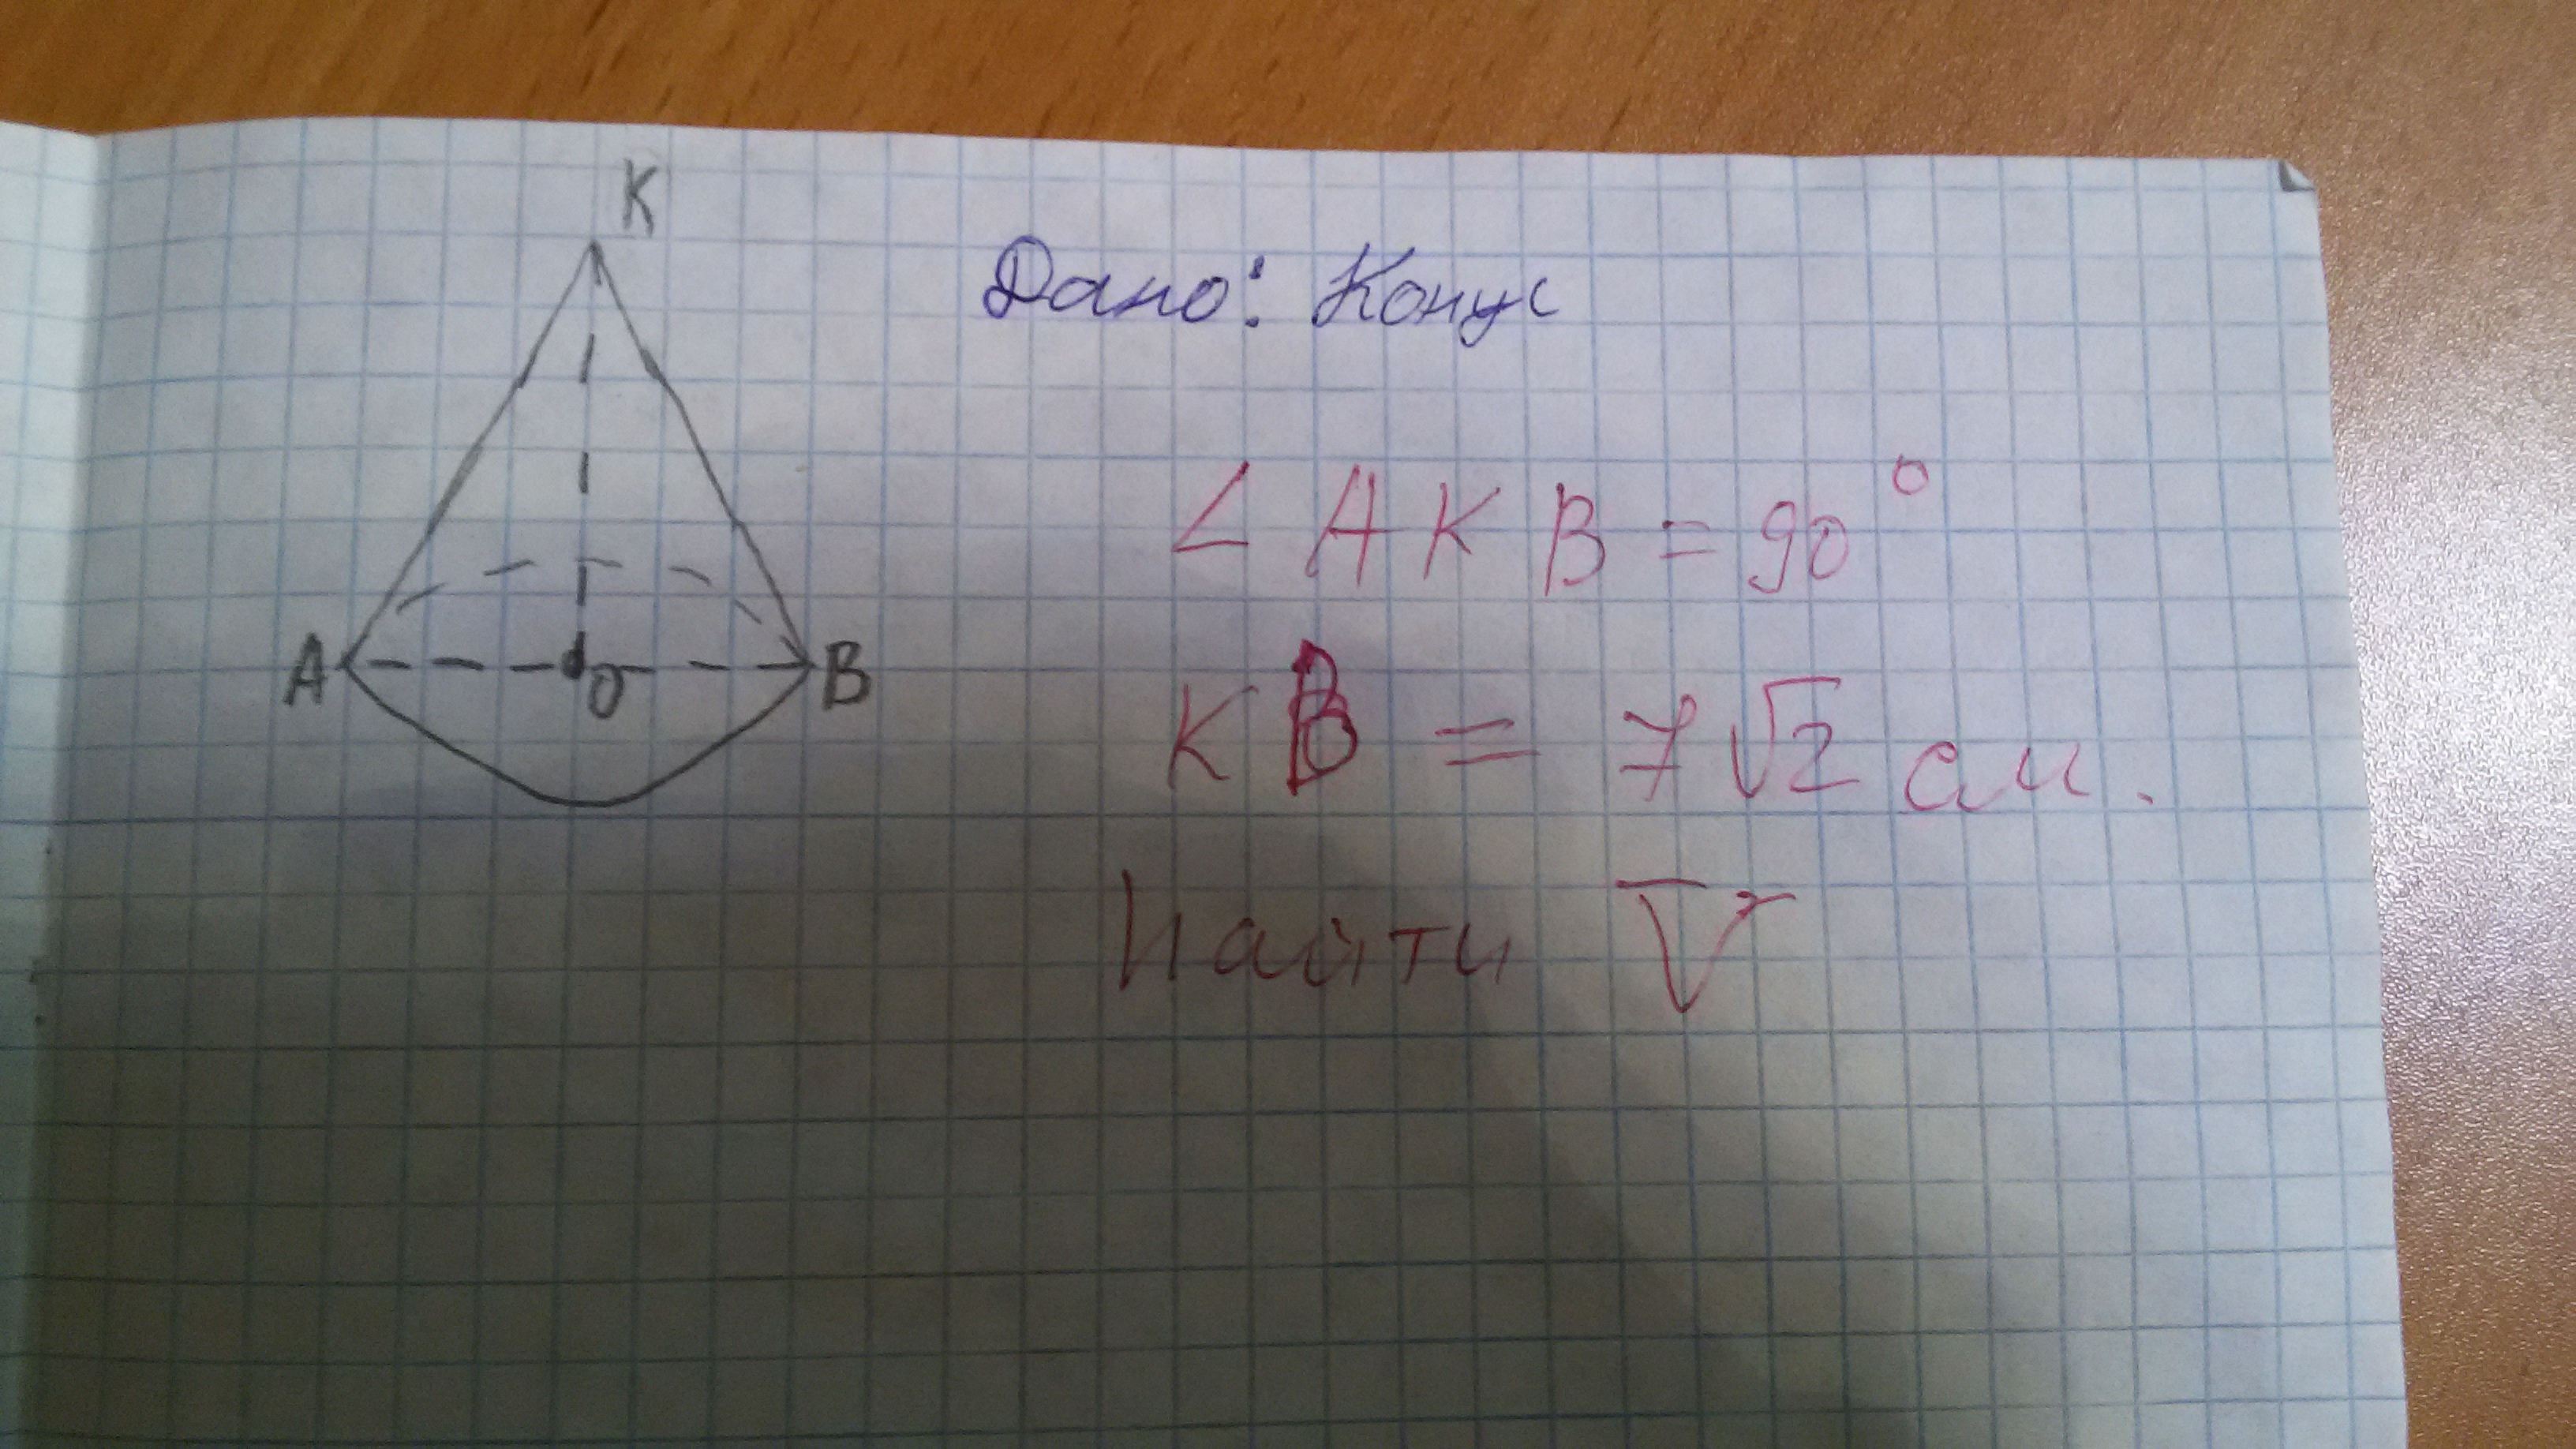 K
A
O
B
Дано: Конус
∠AKB = 90°
KB = 7√2 см.
Найти V